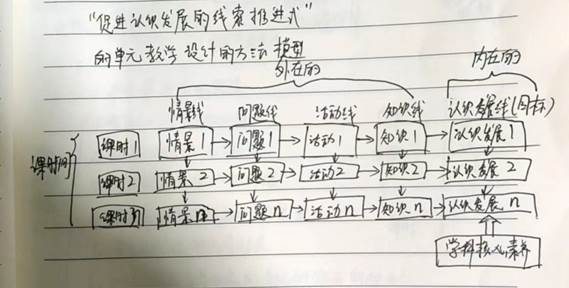 “促进认识发展的线索推进式”
的单元教学设计的方法模型
外在的 内在的
情景线 问题线 活动线 知识线 认识发展线(目标)
课时1 情景1 问题1 活动1 知识1 认识发展1
课时间
课时2 情景2 问题2 活动2 知识2 认识发展2
课时n 情景n 问题n 活动n 知识n 认识发展n
学科核心素养